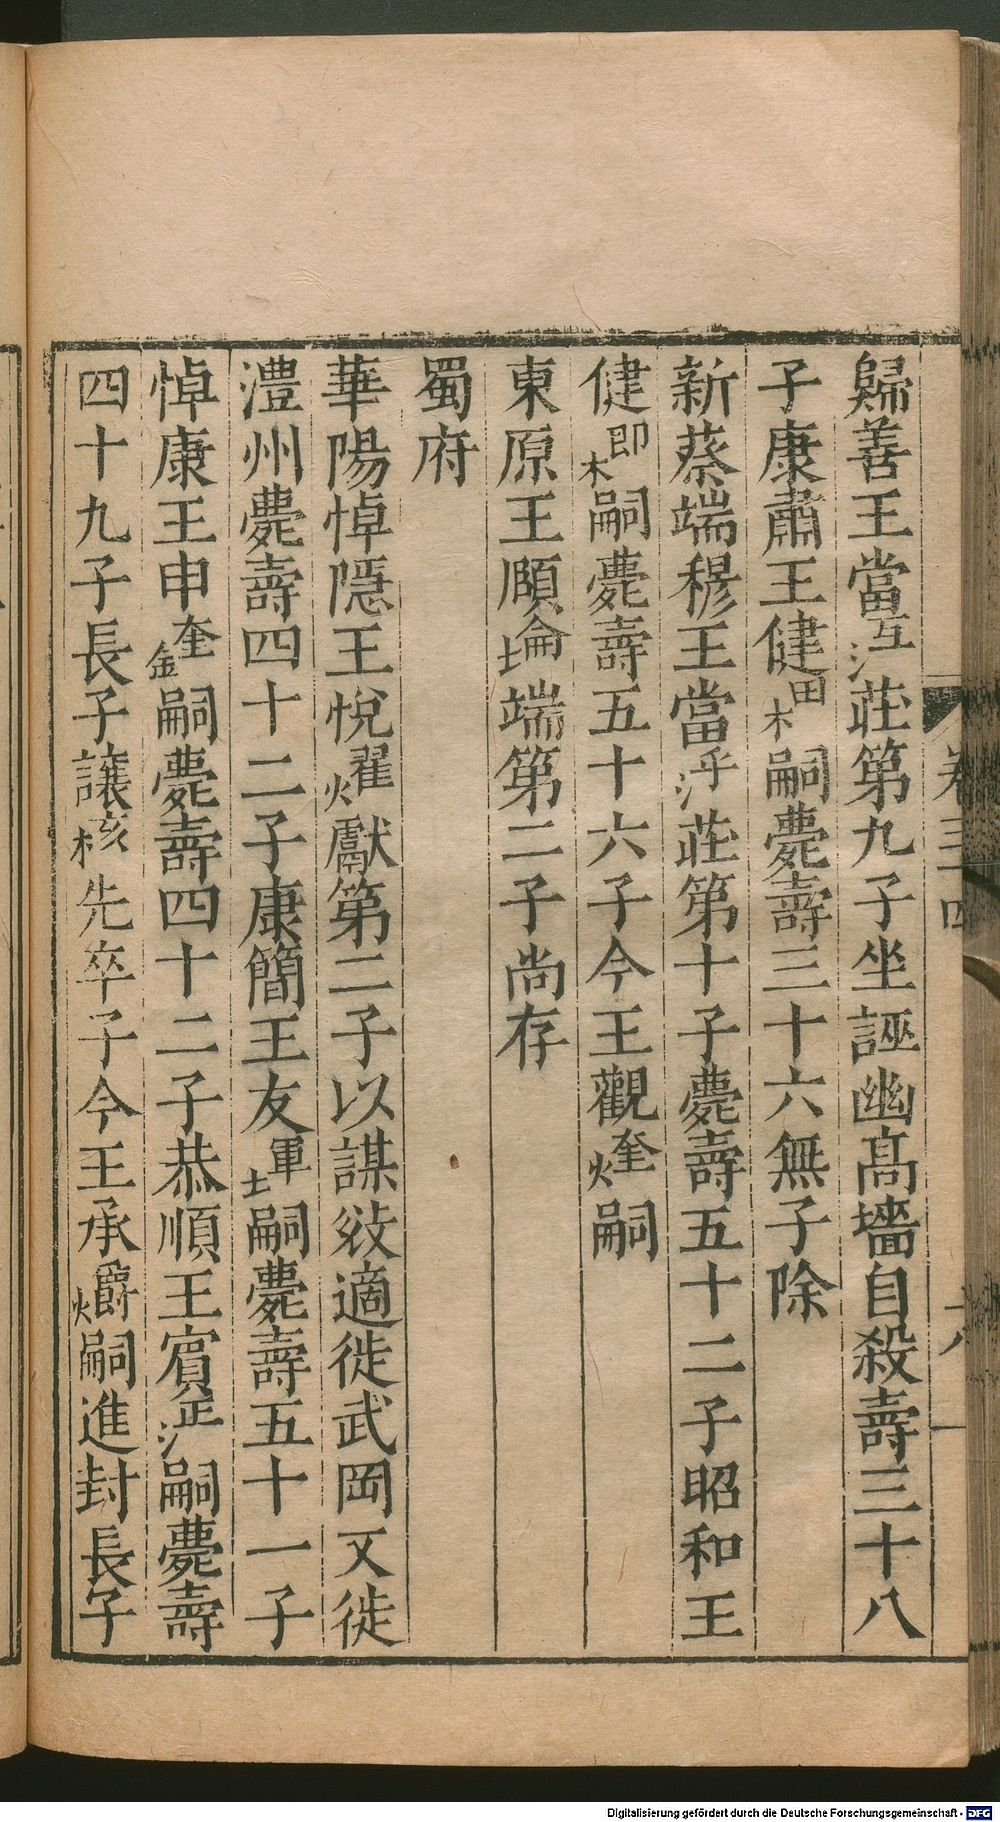 卷三四 十八
歸善王當沍莊第九子坐誣幽高墻自殺壽三十八
子康肅王健⿰木田嗣薨壽三十六無子除
新蔡端穆王當泘莊第十子薨壽五十二子昭和王
健楖嗣薨壽五十六子今王觀⿰火奎嗣
東原王頤埨端第二子尚存
蜀府
華陽悼隱王悅燿獻第二子以謀敚適徙武岡又徙
澧州薨壽四十二子康簡王友⿰土軍嗣薨壽五十一子
悼康王申鍷嗣薨壽四十二子恭順王賓泟嗣薨壽
四十九子長子讓核先卒子今王承爝嗣進封長子
Digitalisierung gefördert durch die Deutsche Forschungsgemeinschaft - DFG